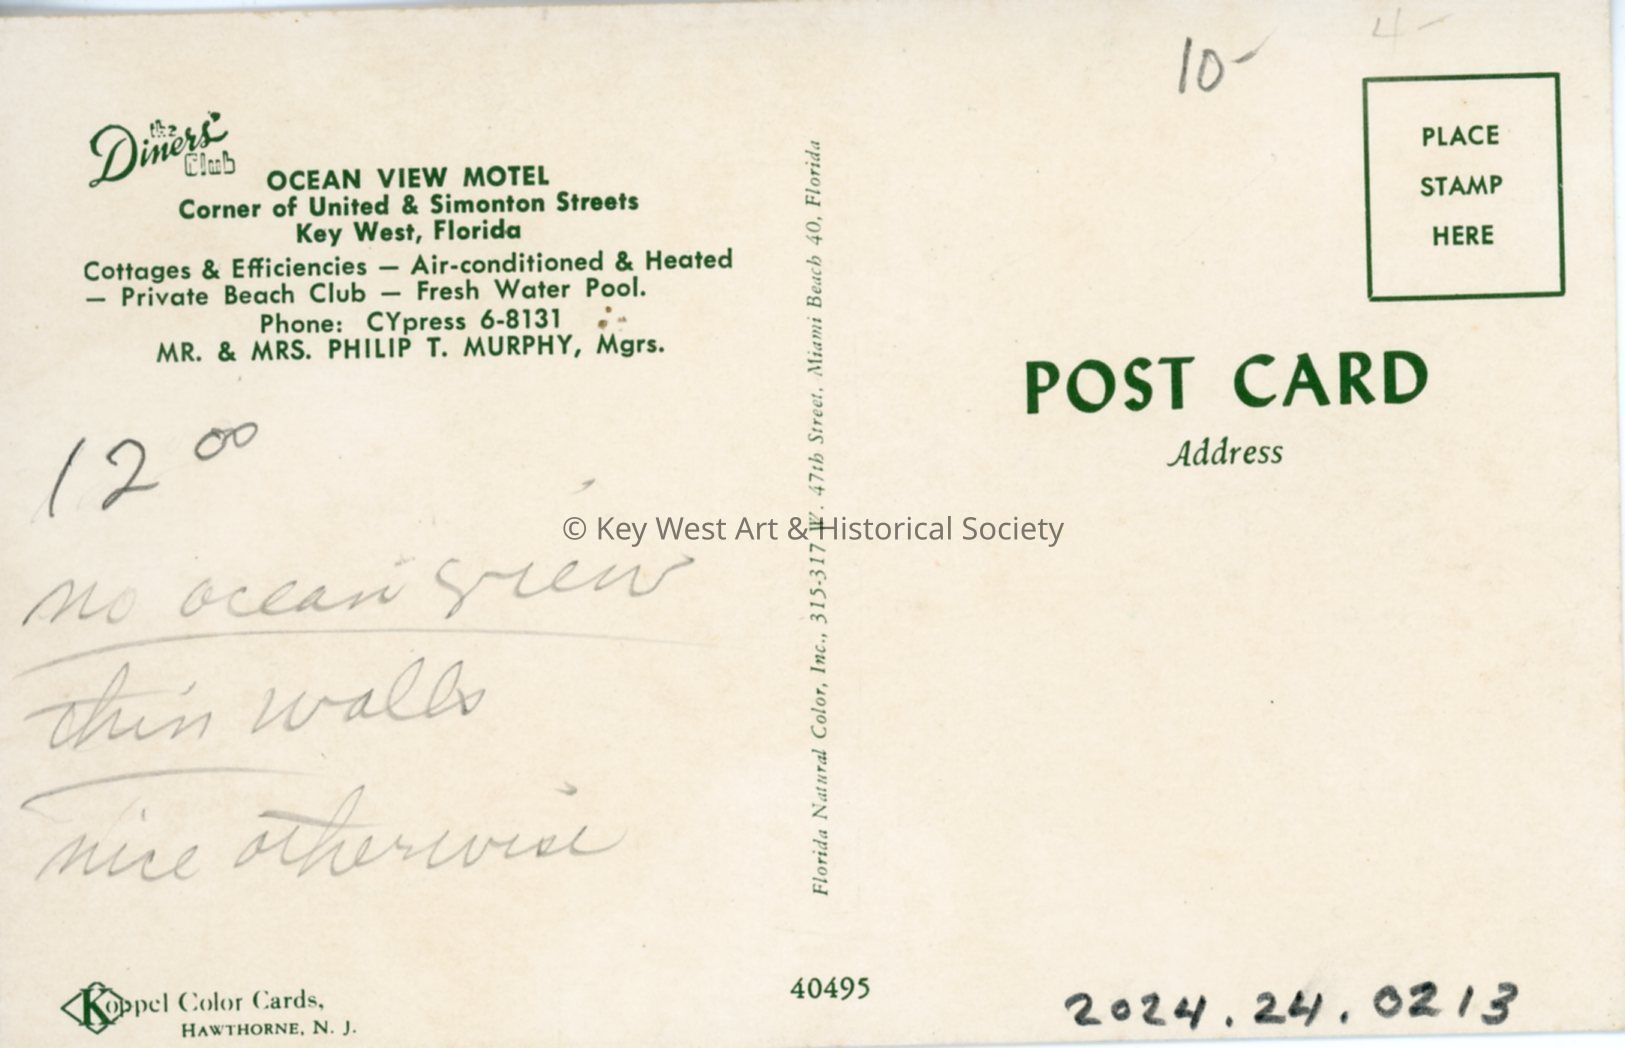 10-
4-
the
Diners'
Club
OCEAN VIEW MOTEL
Corner of United & Simonton Streets
Key West, Florida
Cottages & Efficiencies — Air-conditioned & Heated
— Private Beach Club — Fresh Water Pool.
Phone: CYpress 6-8131
MR. & MRS. PHILIP T. MURPHY, Mgrs.
12 00
no ocean view
thin walls
nice otherwise
Koppel Color Cards,
HAWTHORNE, N. J.
Florida Natural Color, Inc., 315-317 W. 47th Street, Miami Beach 40, Florida
40495
PLACE
STAMP
HERE
POST CARD
Address
© Key West Art & Historical Society
2024.24.0213